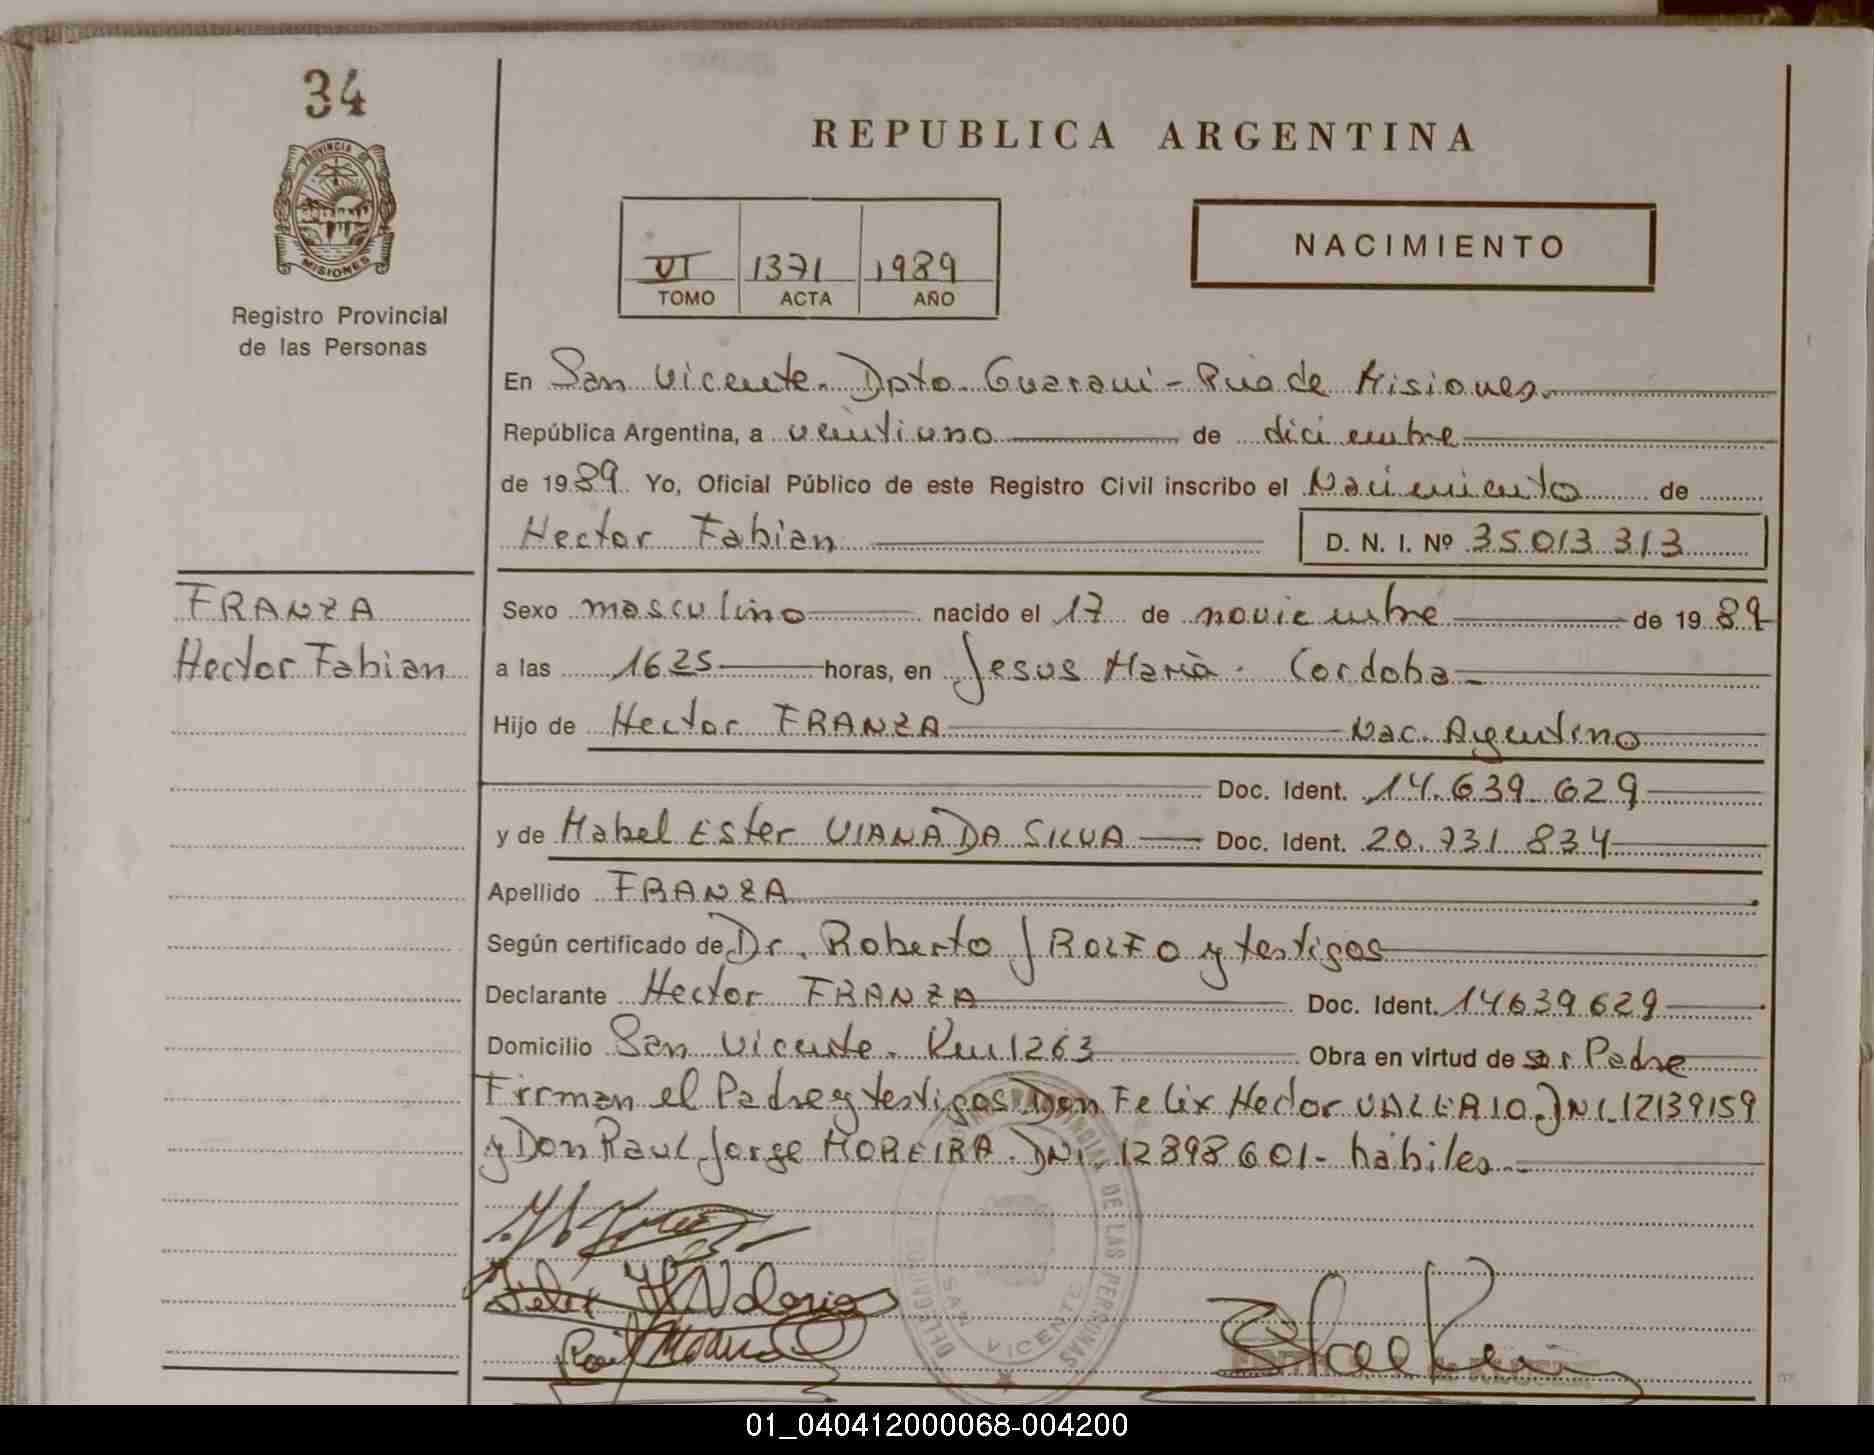 34
PROVINCIA DE
MISIONES
Registro Provincial
de las Personas
REPUBLICA ARGENTINA
VI 1371 1989
TOMO ACTA AÑO
NACIMIENTO
En San Vicente. Dpto. Guarani - Pcia de Misiones.
República Argentina, a veintiuno de diciembre
de 1989. Yo, Oficial Público de este Registro Civil inscribo el Nacimiento de
Hector Fabian D. N. I. Nº 35013 313
FRANZA
Hector Fabian
Sexo masculino nacido el 17 de noviembre de 1989
a las 1625 horas, en Jesus Maria - Cordoba
Hijo de Hector FRANZA Nac. Argentino
Doc. Ident. 14.639 629
y de Mabel Ester VIANA DA SILVA Doc. Ident. 20.731 834
Apellido FRANZA
Según certificado de Dr. Roberto J ROLFO y testigos
Declarante Hector FRANZA Doc. Ident. 14639629
Domicilio San Vicente. Km 1263 Obra en virtud de ser Padre
Firman el Padre y testigos Don Felix Hector DNI. 12139159
y Don Raul Jorge MOREIRA. DNI. 12898601- hábiles
DE LAS PERSONAS
SAN VICENTE
01_040412000068-004200